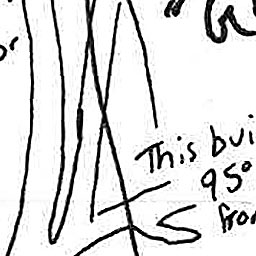 or
This bui
95°
from